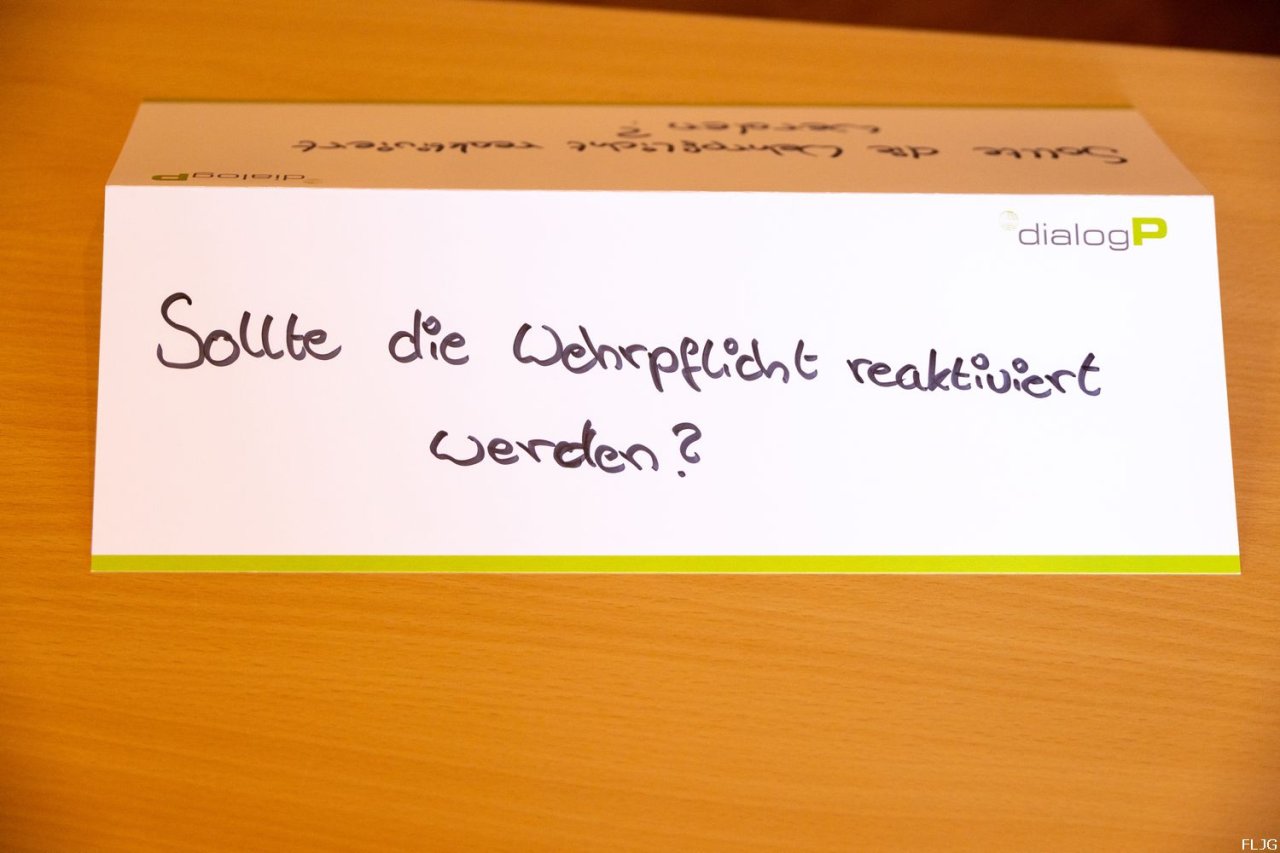 Sollte die Wehrpflicht reaktiviert
werden?
dialogP
dialogP
Sollte die Wehrpflicht reaktiviert
werden?
FLJG